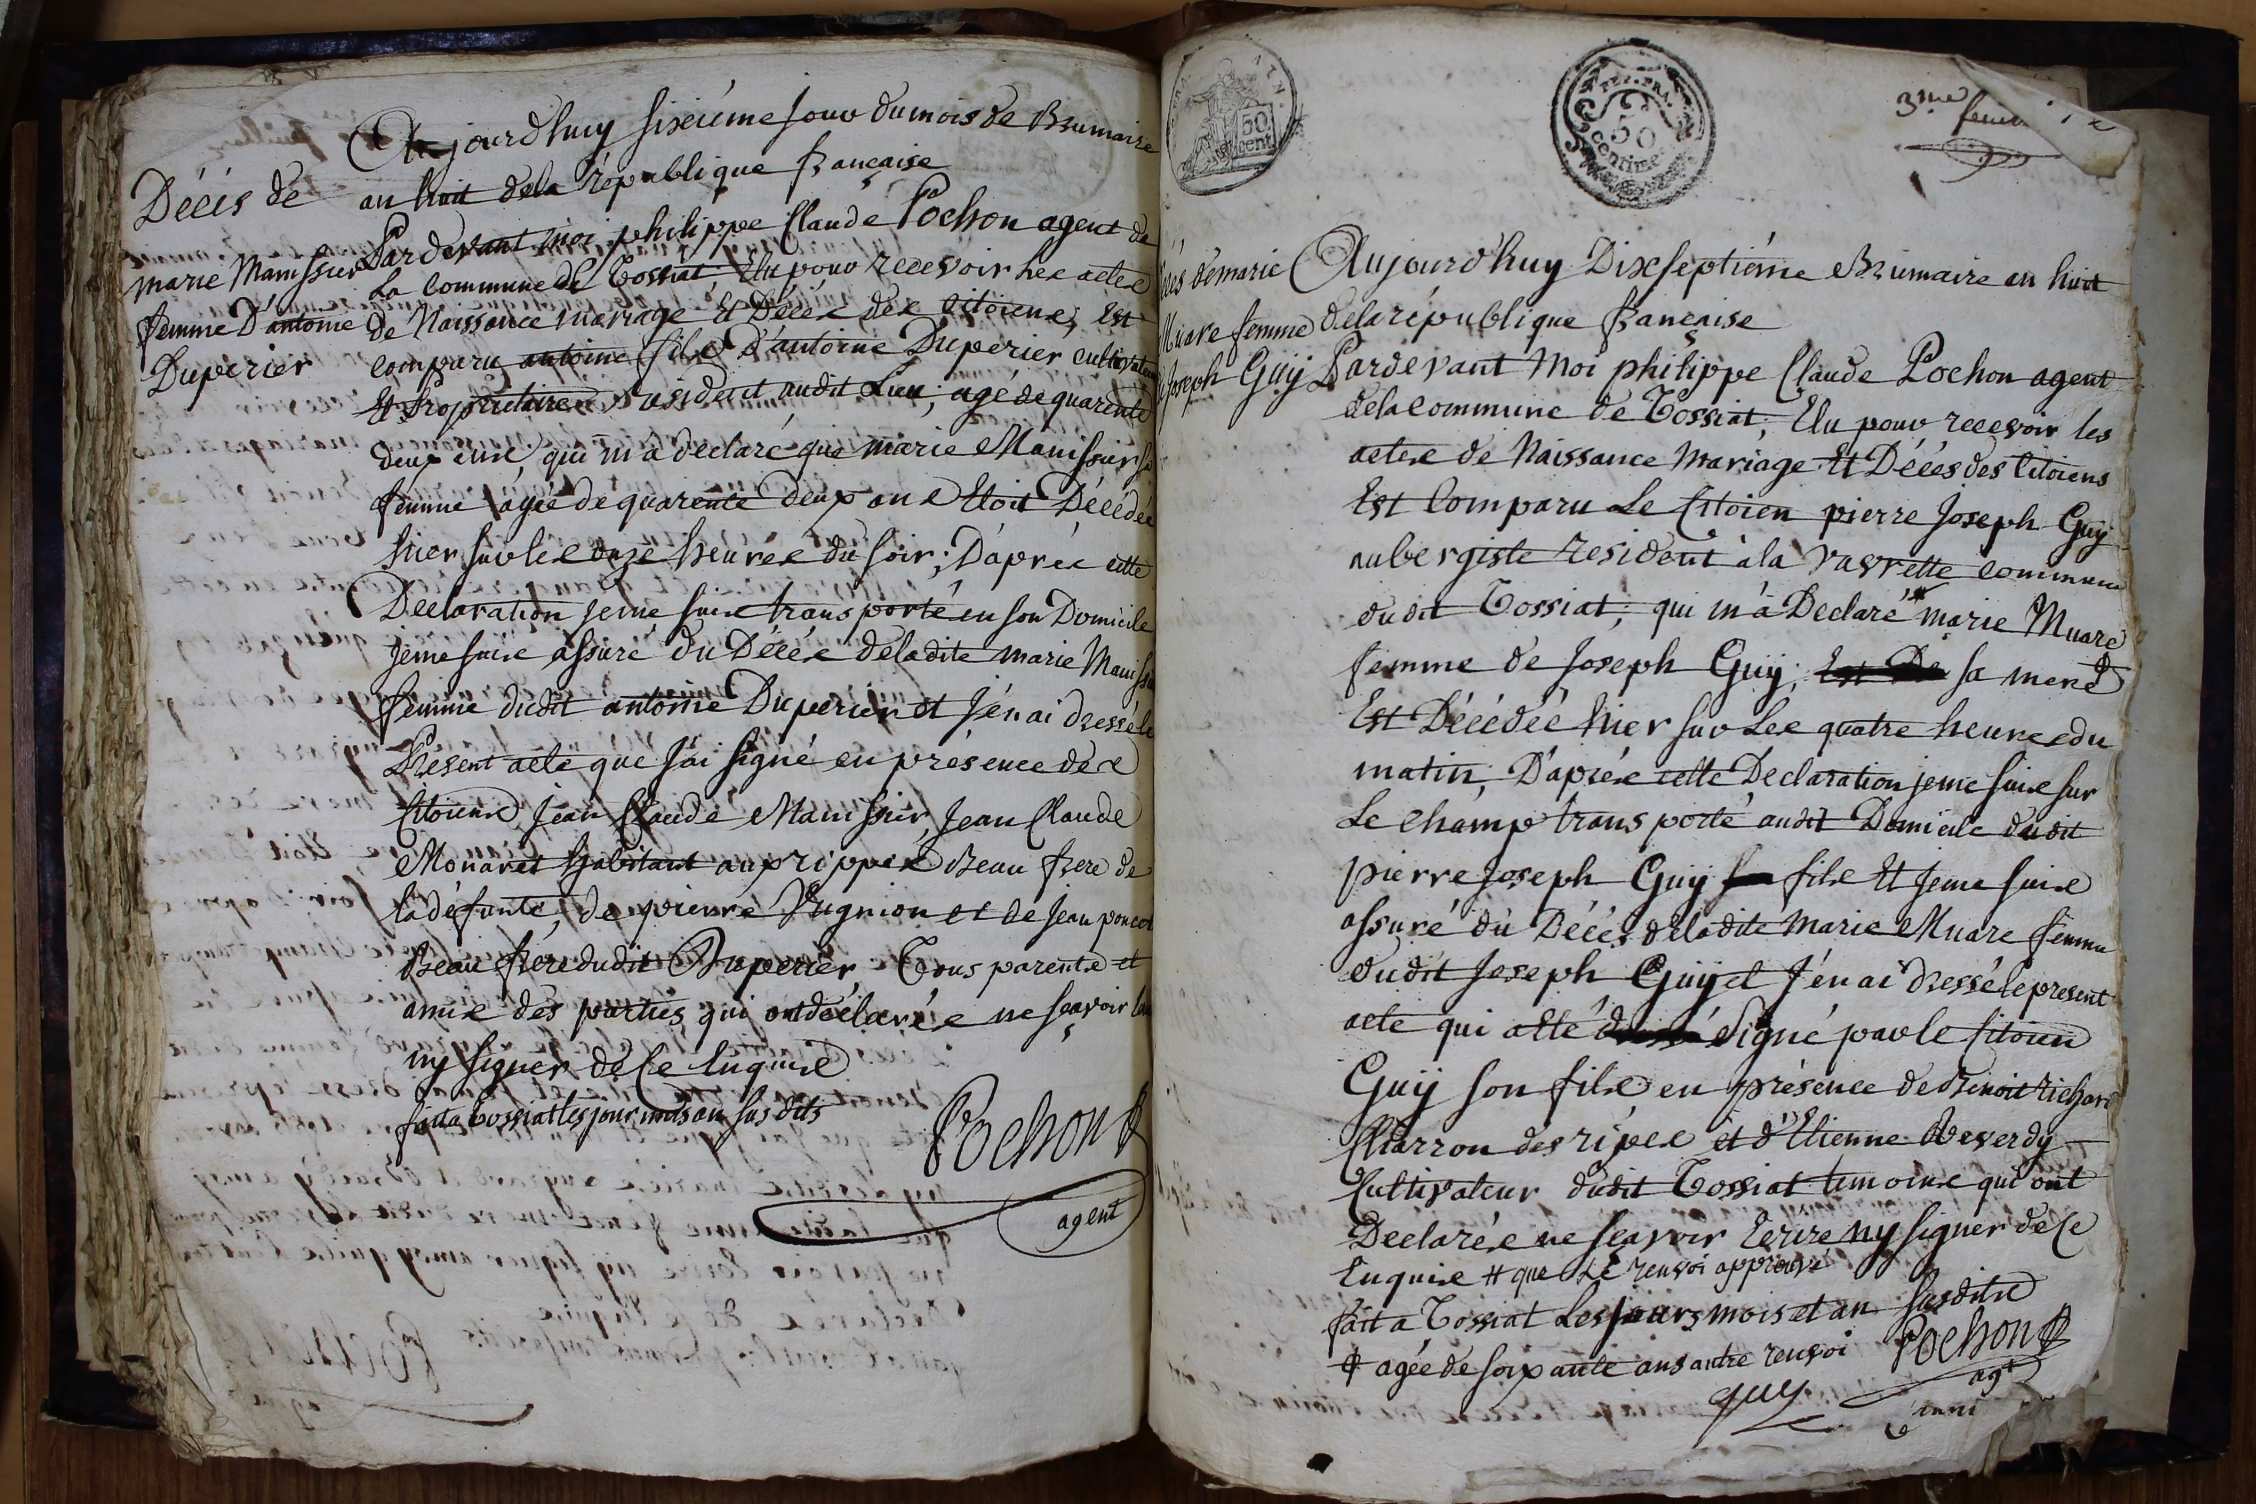 Aujourdhuy sixiéme jour du mois de Brumaire
an huit dela république française
Décés de
marie Manissier
femme D'antoine
Duperier
Pardevant moi philippe Claude Pochon agent de
La Commune de Tossiat, Elu pour recevoir les actes
de Naissance mariage Et Décès des Citoiens, Est
comparu antoine fils d'antoine Duperier cultivateur
Et Proprietaire residant audit Lieu, agé de quarente
deux ans, qui m'a declaré que marie Manissier sa
femme agée de quarente deux ans Etoit Décédée
hier sur les onze heures du soir; D'après cette
Declaration jeme suis transporté en son Domicile
jeme suis assuré du Décés deladite marie Manissier
femme dudit antoine Duperier et J'en ai dressé le
Présent acte que J'ai signé en présence des
Citoiens Jean Claude Manissier, Jean Claude
Monaret habitant aux rippes Beau frere de
la défunte, de pierre Vugnion et de Jean poncet
Beau frére dudit Duperier Tous parents et
amis des parties qui ont déclarés ne sçavoir
ny signer de Ce Enquis
fait a Tossiat les jour mois an sus dits
Pochon
agent
50
cent
REP. FRA.
50
centime
3me feuil
Décés de marie
Muare femme
de Joseph Guÿ
Aujourd'huy Dixseptiéme Brumaire an huit
dela république française
Pardevant Moi philippe Claude Pochon agent
dela commune de Tossiat, Elu pour recevoir les
actes de Naissance Mariage Et Décés des Citoiens
Est Comparu Le Citoien pierre Joseph Guÿ
aubergiste resident à la Vavrette commune
dudit Tossiat; qui m'à Declaré # marie Muare
femme de Joseph Guÿ, sa mere
Est Décédée hier sur Les quatre heures du
matin, D'après cette Declaration jeme suis sur
Le champ transporté audit Domicile dudit
pierre Joseph Guÿ fils Et Jeme suis
assuré du Décés deladite marie Muare femme
dudit Joseph Guÿ et J'en ai dressé le present
acte qui a Eté signé par le Citoien
Guÿ son fils en présence de Benoit richard
Charron des ripes et d'Etienne Reverdy
Cultivateur dudit Tossiat temoins qui ont
Declarés ne sçavoir Ecrire ny signer de Ce
Enquis # que Le renvoi approuvé
fait a Tossiat Les jours mois et an susdits
agée de soixante ans autre renvoi
Pochon
agt
guy